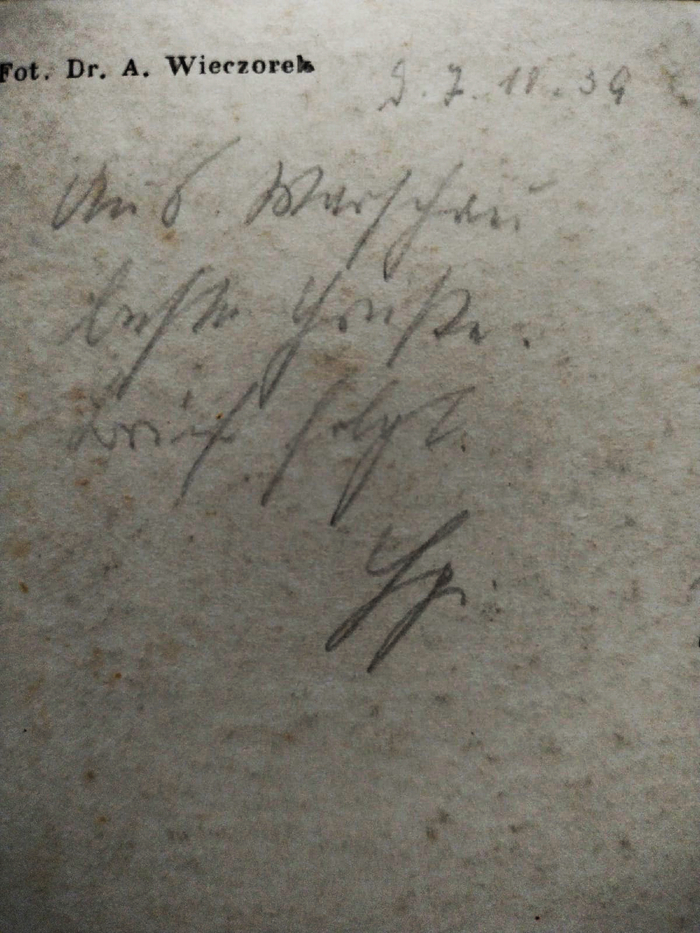 Fot. Dr. A. Wieczorek
D. 7. 10. 39
Aus Warschau
beste Grüße.
Brief folgt.